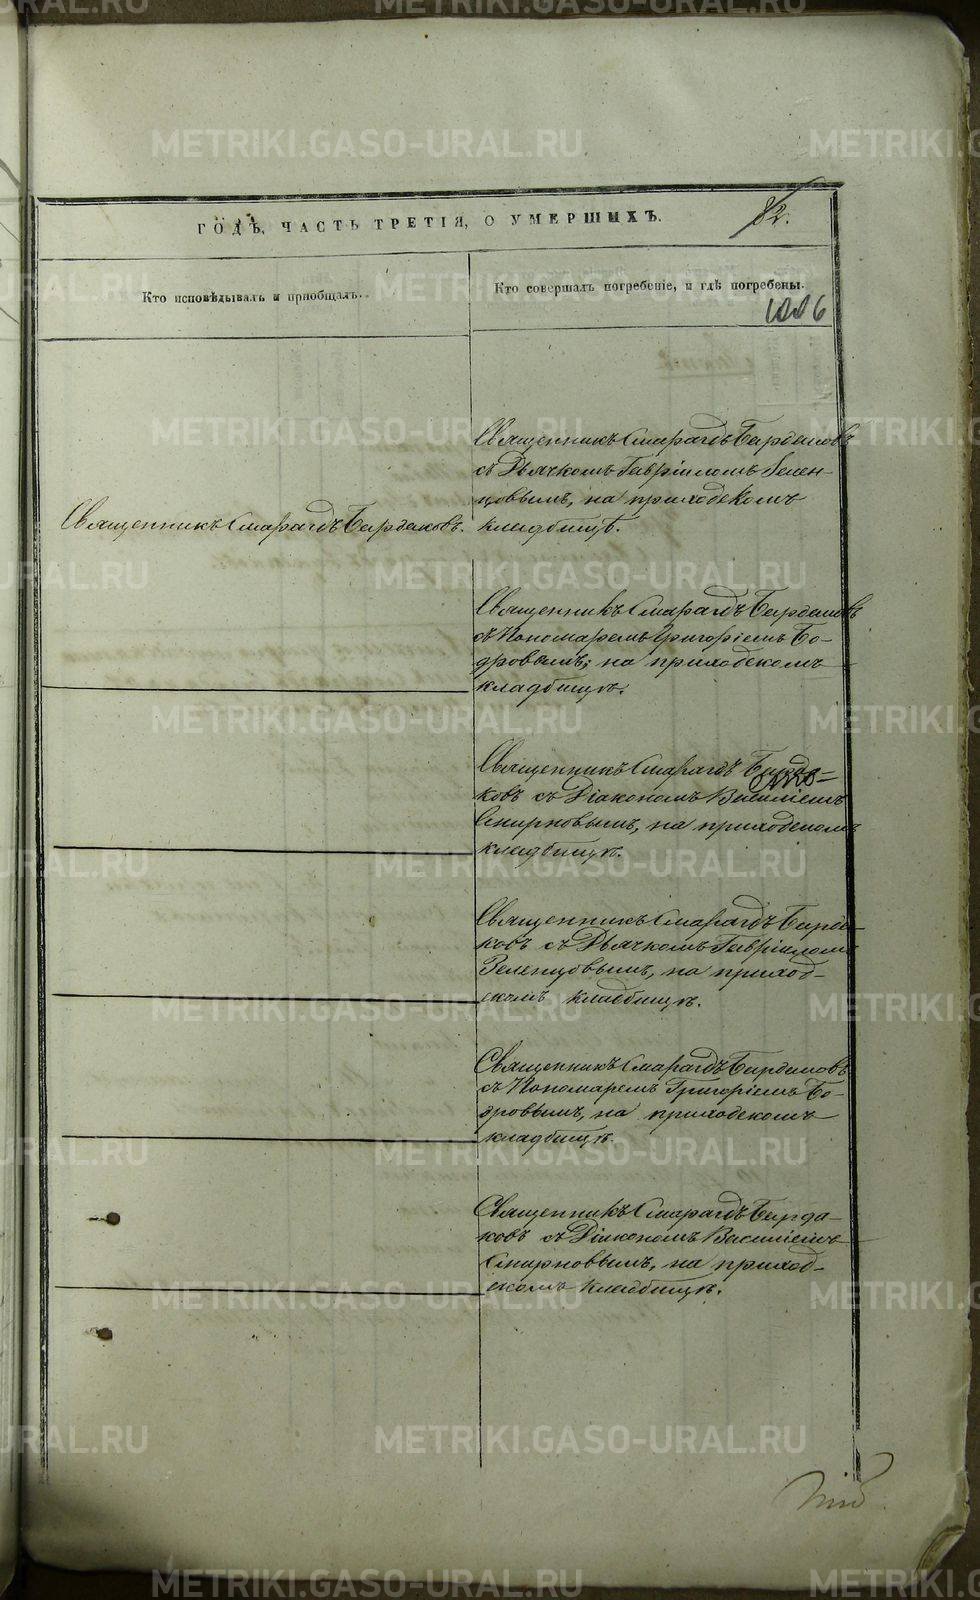 METRIKI.GASO-URAL.RU
ГОДЪ, ЧАСТЬ ТРЕТІЯ, О УМЕРШИХЪ.
82.
Кто исповѣдывалъ и пріобщалъ.
Кто совершалъ погребеніе, и гдѣ погребены.
1006
Священникъ Смарагдъ Бирдаковъ
съ Дьячкомъ Гавріиломъ Зелен-
цовымъ, на приходскомъ
Священникъ Смарагдъ Бирдаковъ.
кладбищѣ.
Священникъ Смарагдъ Бирдаковъ
съ Пономаремъ Григоріемъ Бо-
дровымъ, на приходскомъ
кладбищѣ.
Священникъ Смарагдъ Бирда-
ковъ съ Діакономъ Василіемъ
Смирновымъ, на приходскомъ
кладбищѣ.
Священникъ Смарагдъ Бирда-
ковъ съ Дьячкомъ Гавріиломъ
Зеленцовымъ, на приход-
скомъ кладбищѣ.
Священникъ Смарагдъ Бирдаковъ
съ Пономаремъ Григоріемъ Бо-
дровымъ, на приходскомъ
кладбищѣ.
Священникъ Смарагдъ Бирда-
ковъ съ Діакономъ Василіемъ
Смирновымъ, на приход-
скомъ кладбищѣ.